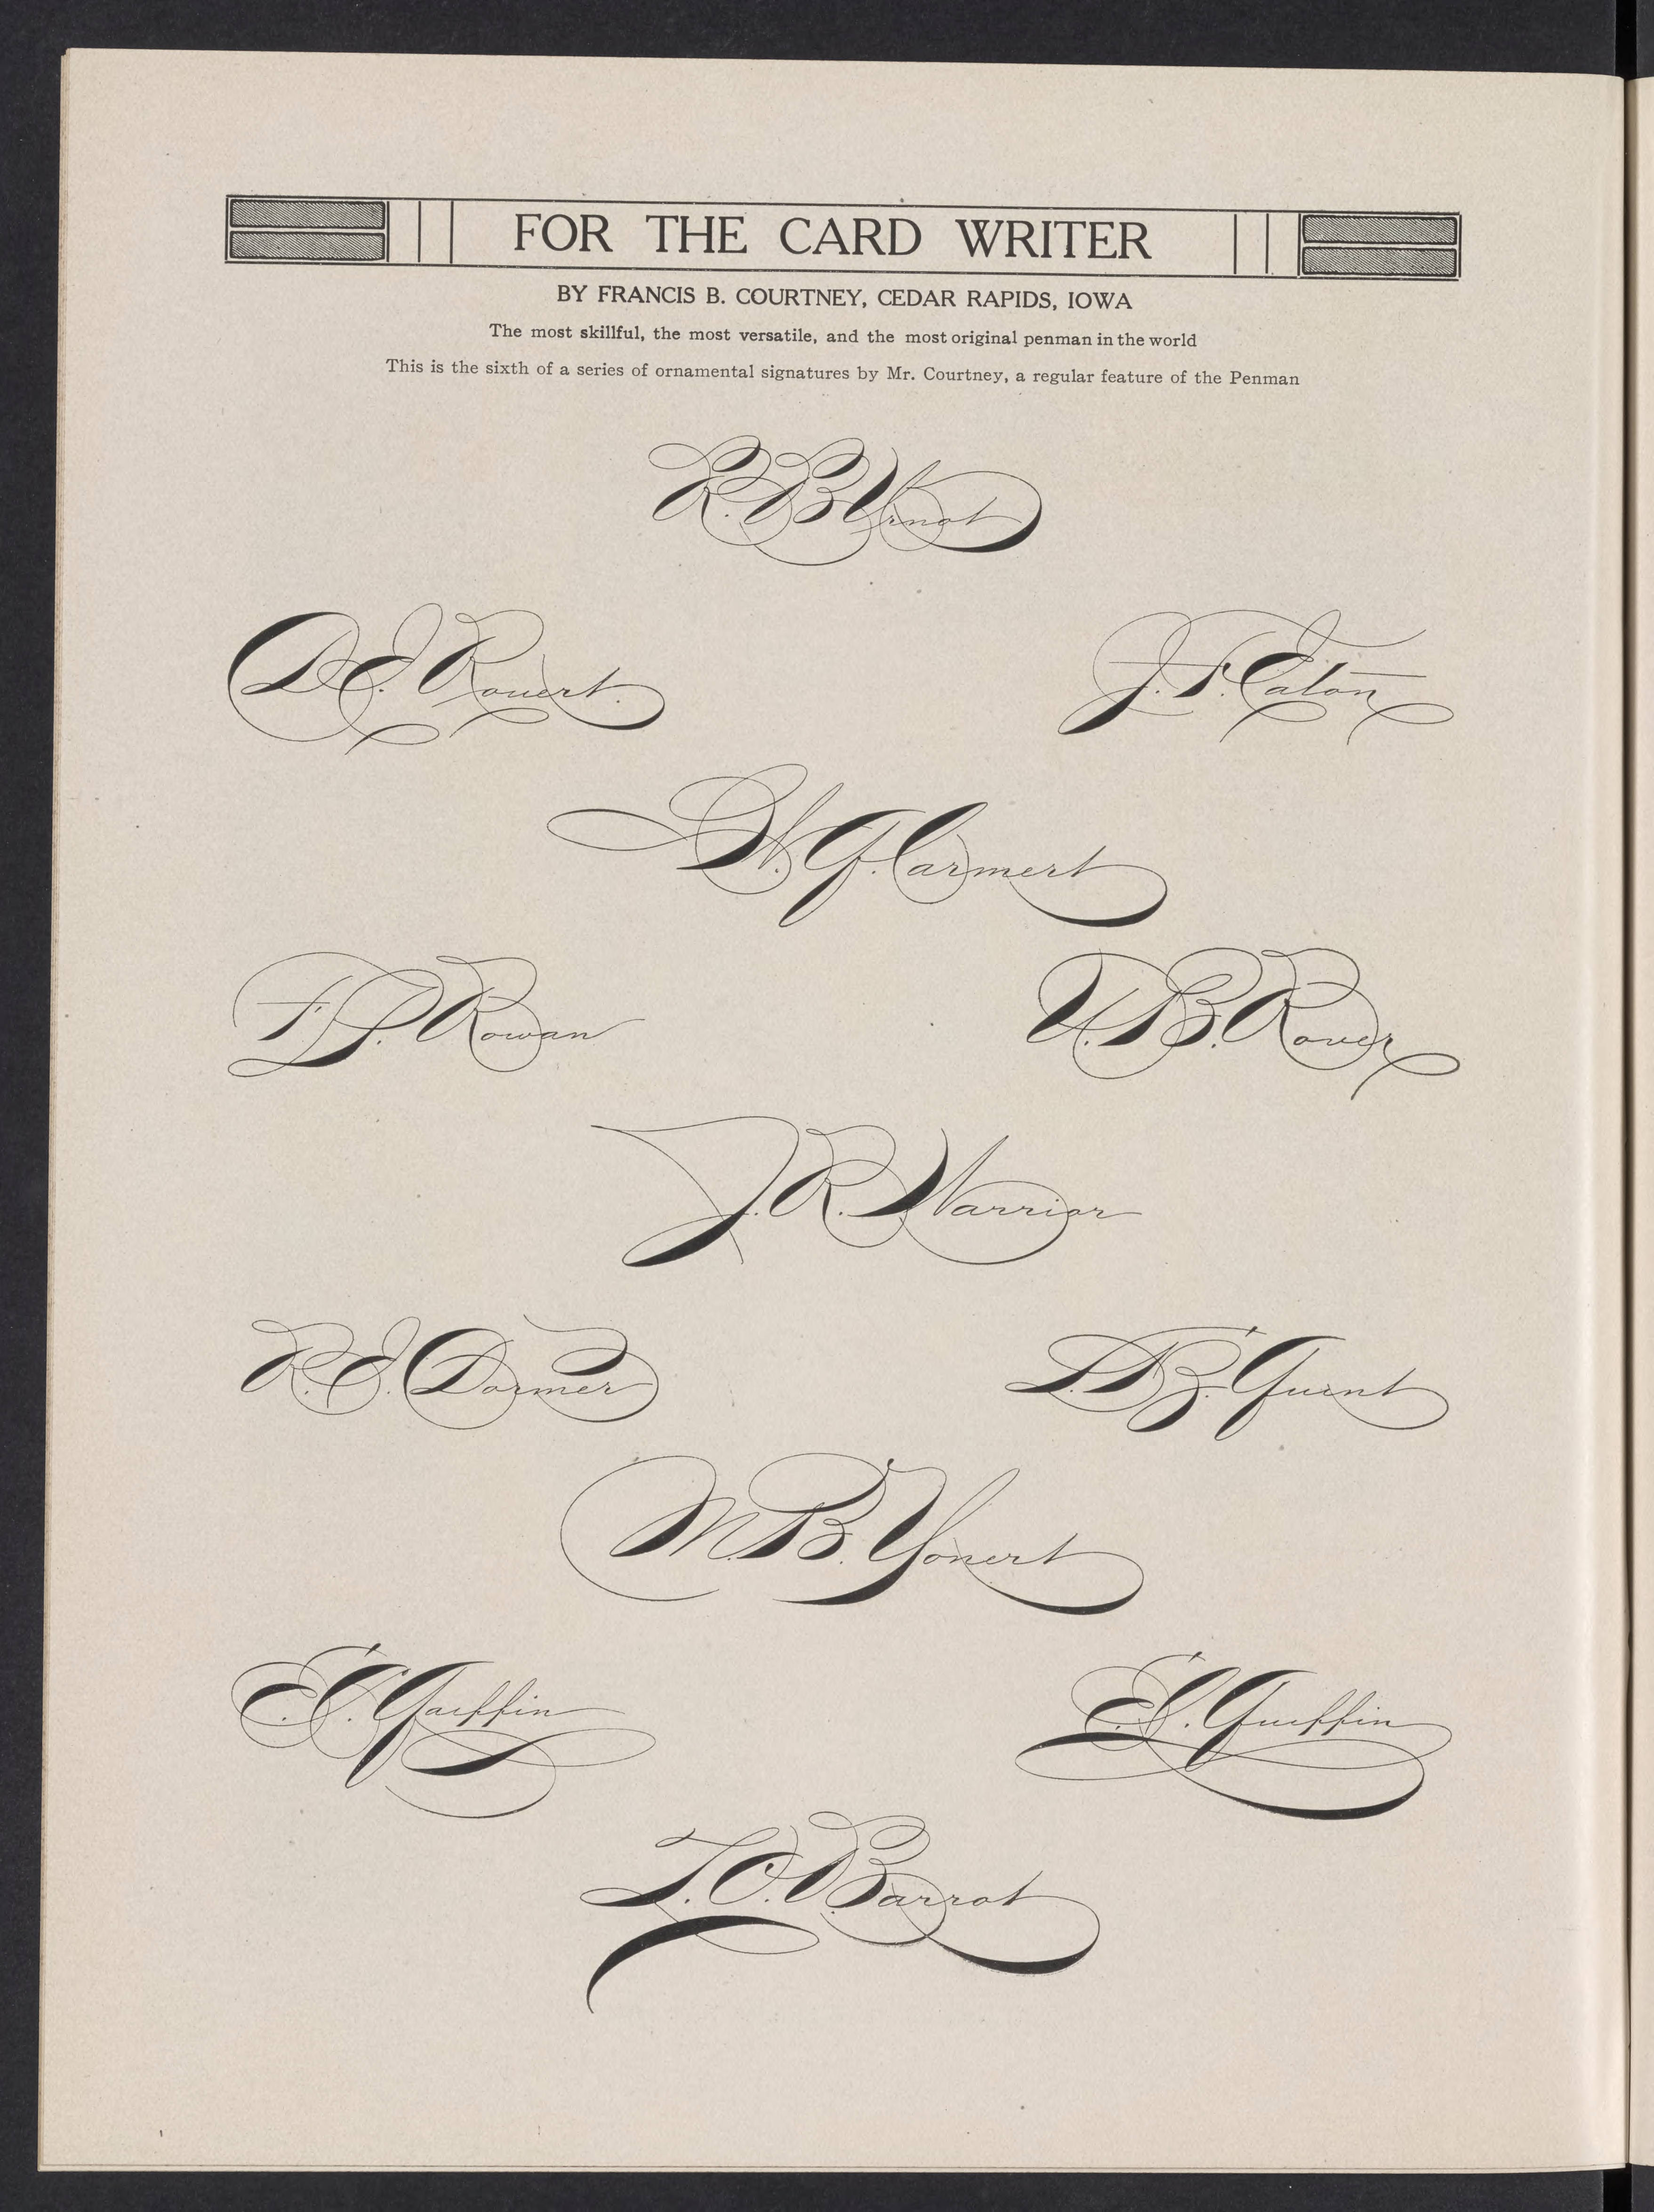 FOR THE CARD WRITER
BY FRANCIS B. COURTNEY, CEDAR RAPIDS, IOWA
The most skillful, the most versatile, and the most original penman in the world
This is the sixth of a series of ornamental signatures by Mr. Courtney, a regular feature of the Penman
R. B.
D. E. Rouert.
J. F. Eaton
W. G. Carmert
F. P. Rowan
U. B. Rover
J. R. Warrior
R. E. Dormer
L. B. Guent
M. B. Yonert
E. C. Gaiffin
E. C. Gueffin
T. O. Barrot